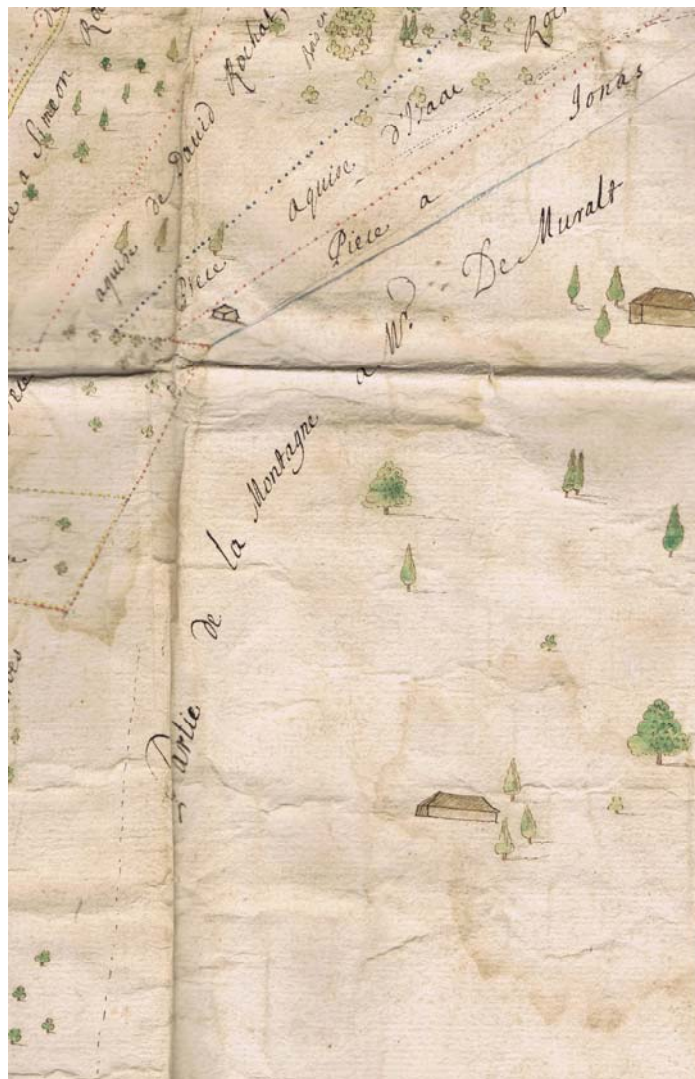 a Simeon Ro
aquise de David Rochat
Bois en
Piece aquise d'Isaac Roch
Piece a Jonas
Partie de la Montagne a Mr. De Muralt